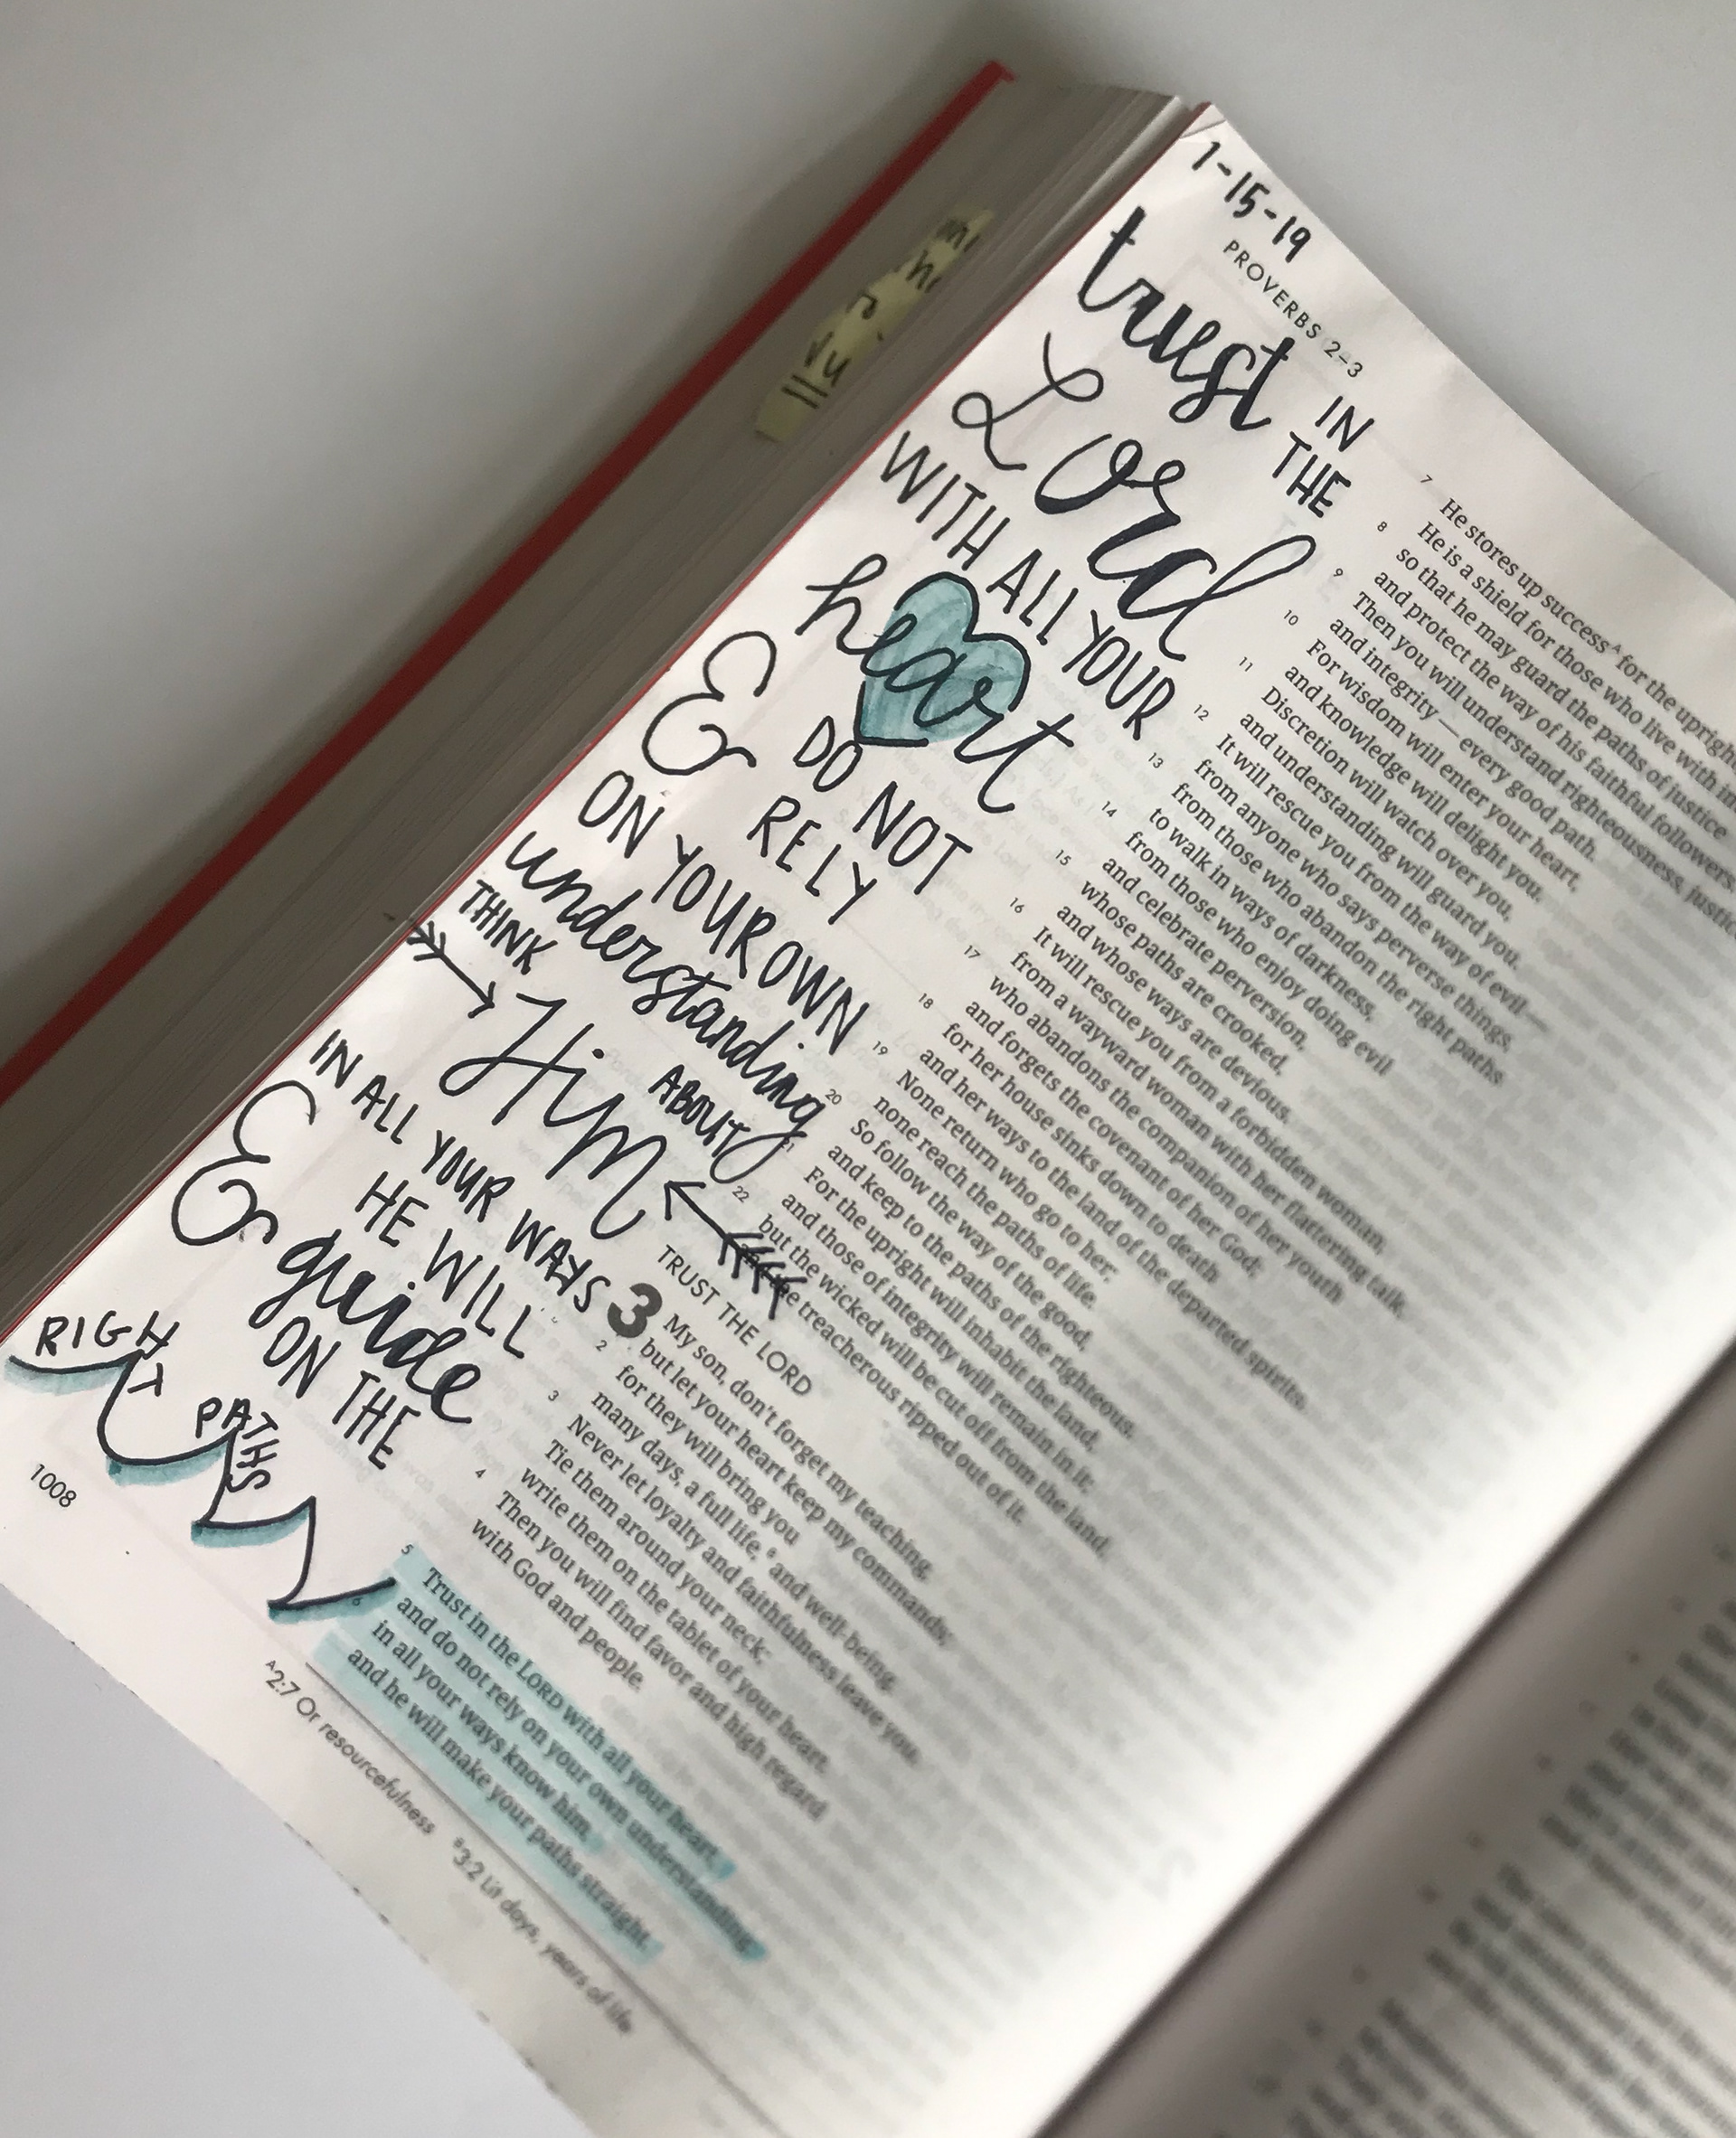 1-15-19
PROVERBS 2–3
trust IN
THE
Lord
WITH ALL YOUR
heart
& DO NOT
RELY
ON YOUR OWN
understanding
THINK
ABOUT
Him
IN ALL YOUR WAYS
& HE WILL
guide
ON THE
RIGHT
PATHS
7 He stores up success A for the upright;
He is a shield for those who live with
8 so that he may guard the paths of justice
and protect the way of his faithful followers.
9 Then you will understand righteousness, justice,
and integrity — every good path.
10 For wisdom will enter your heart,
and knowledge will delight you.
11 Discretion will watch over you,
and understanding will guard you.
12 It will rescue you from the way of evil —
from anyone who says perverse things,
13 from those who abandon the right paths
to walk in ways of darkness,
14 from those who enjoy doing evil
and celebrate perversion,
15 whose paths are crooked,
and whose ways are devious.
16 It will rescue you from a forbidden woman,
from a wayward woman with her flattering talk,
17 who abandons the companion of her youth
and forgets the covenant of her God;
18 for her house sinks down to death
and her ways to the land of the departed spirits.
19 None return who go to her;
none reach the paths of life.
20 So follow the way of the good,
and keep to the paths of the righteous.
21 For the upright will inhabit the land,
and those of integrity will remain in it;
22 but the wicked will be cut off from the land,
the treacherous ripped out of it.
TRUST THE LORD
3 My son, don't forget my teaching,
but let your heart keep my commands;
2 for they will bring you
many days, a full life, B and well-being.
3 Never let loyalty and faithfulness leave you.
Tie them around your neck;
write them on the tablet of your heart.
4 Then you will find favor and high regard
with God and people.
5 Trust in the LORD with all your heart,
and do not rely on your own understanding;
6 in all your ways know him,
and he will make your paths straight.
A 2:7 Or resourcefulness B 3:2 Lit days, years of life
1008